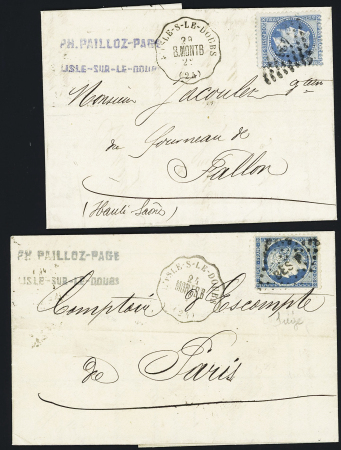 PH. PAILLOZ-PAGE
LISLE-SUR-LE-DOUBS
L'ISLE-S-LE-DOUBS
29
B.MONTB
(24)
Monsieur Jacoulet
du fourneau de
Fallon
(Haute Saône)
PH. PAILLOZ-PAGE
LISLE-SUR-LE-DOUBS
L'ISLE-S-LE-DOUBS
(24)
Comptoir d'Escompte
de
Paris